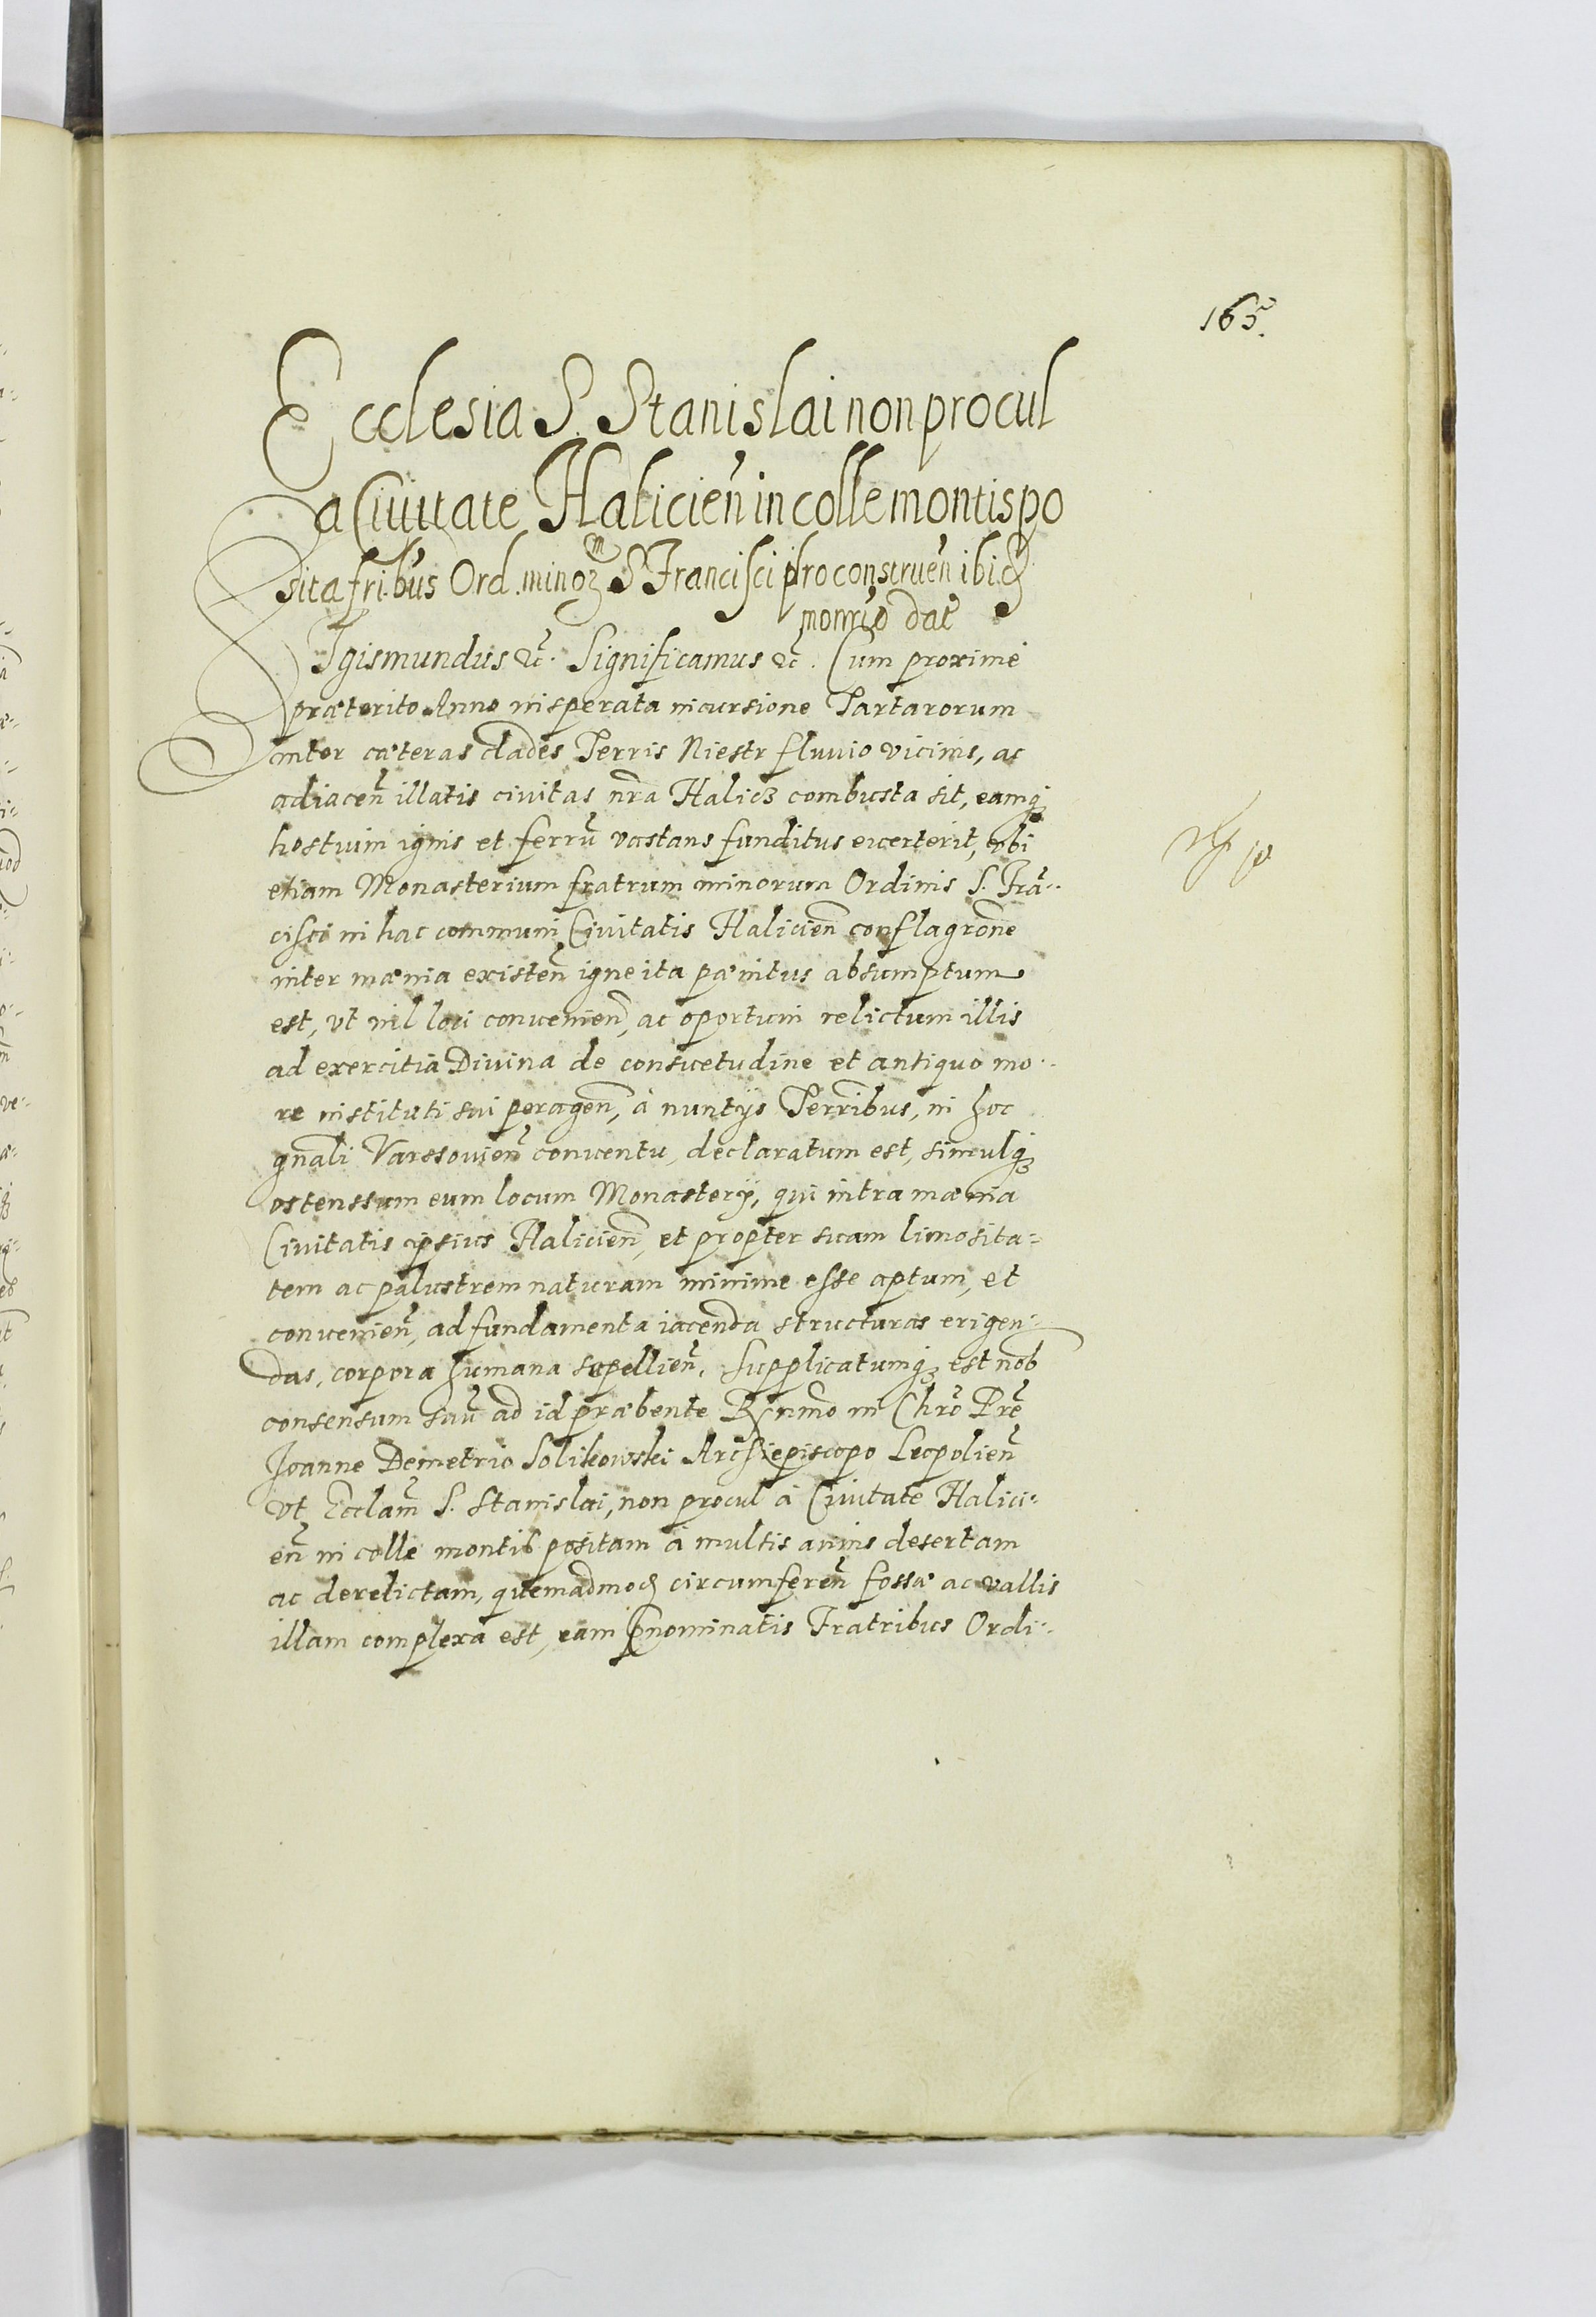 165.
Ecclesia S. Stanislai non procul
a Ciuitate Halicień in colle montis po
sita frībus Ord. minoꝝ S Francisci pro construeń ibidꝫ
monrīo dat̄
Sigismundus ⁊c̃. Significamus ⁊c̃. Cum proxime
præterito Anno insperata incursione Tartarorum
inter cæteras clades Terris Niestr fluuio vicinis, ac
adiaceñ illatis civitas nr̃a Halicz combusta sit, eamqꝫ
hostium ignis et ferrũ vastans funditus euerterit, vbi
etiam Monasterium fratrum minorum Ordinis S. Frã-
cisci in hac communi Ciuitatis Halicieñ conflagrõne
inter mænia existeñ igne ita pænitus absumptum
est, vt nil loci conuenieñ, ac oportuni relictum illis
ad exercitia Diuina de consuetudine et antiquo mo-
re instituti sui perageñ, à nuntijs Terrībus, in hoc
gnãli Varssouieñ conuentu, declaratum est, simulqꝫ
ostenssum eum locum Monasterÿ, qui intra mænia
Ciuitatis ipsius Halicieñ, et propter suam limosita=
tem ac palustrem naturam minime esse aptum, et
conuenieñ, ad fundamenta iacenda structuras erigen-
das, corpora humana sepellieñ. Supplicatumqꝫ est nob̃
consensum suũ ad id præbente Rx̃nmo in Chrõ Prẽ
Joanne Demetrio Solikowski Archiepiscopo Leopolieñ
vt Eccl̃am S. Stanislai, non procul à Ciuitate Halici-
eñ in colle montis positam à multis annis desertam
ac derelictam, quemadmodꝫ circumfereñ fossæ ac vallis
illam complexa est, eam p̃nominatis Fratribus Ordi-